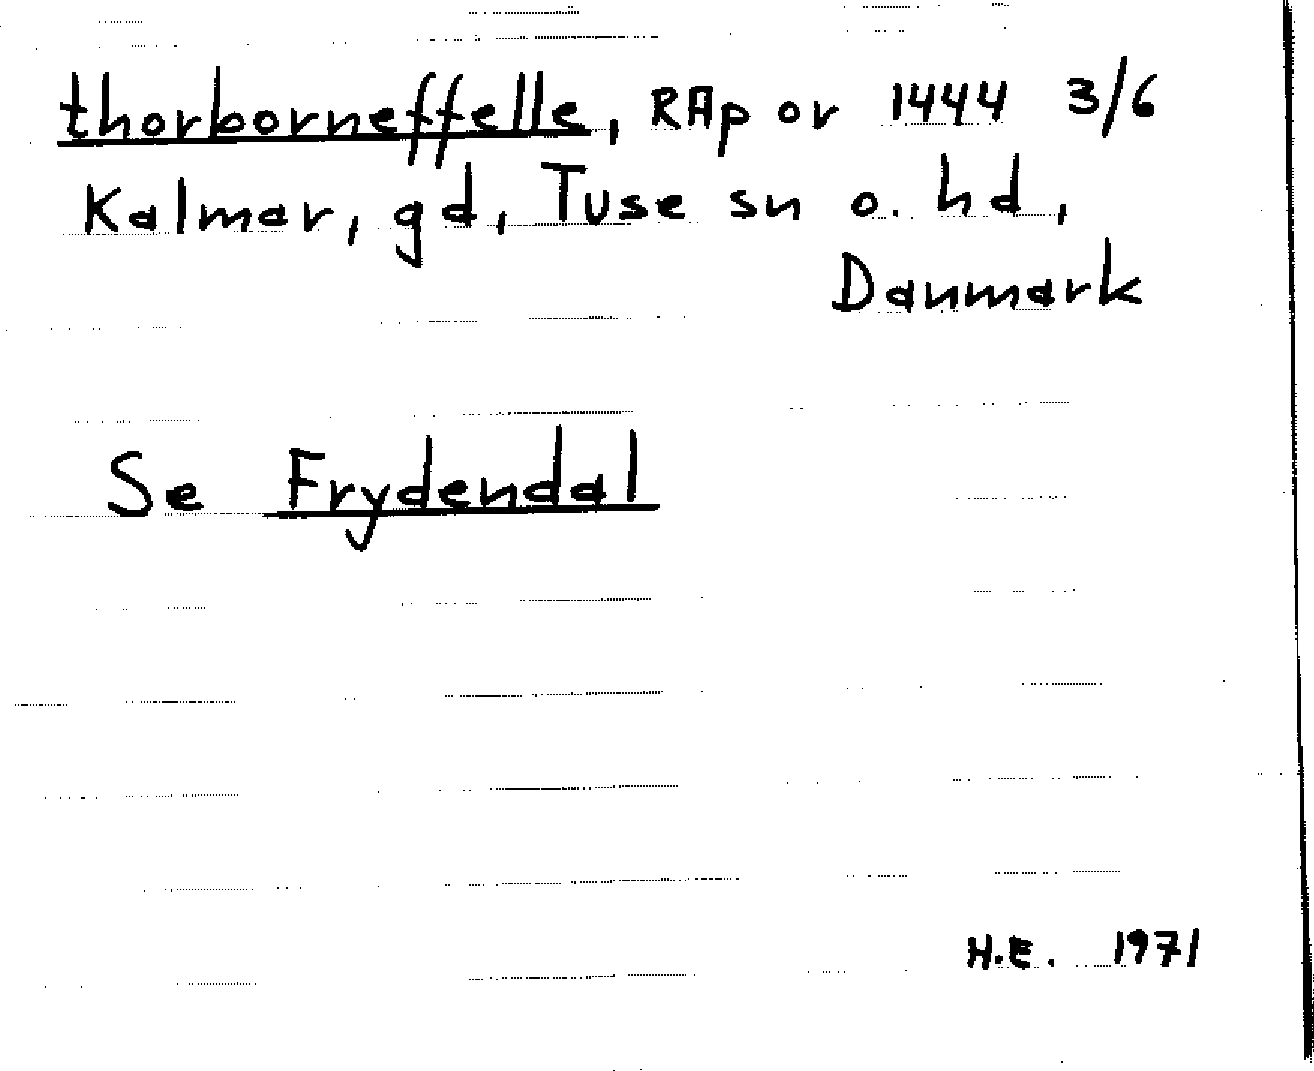 thorborneffelle, RAp or 1444 3/6
Kalmar, gd, Tuse sn o. hd,
Danmark
Se Frydendal
H.E. 1971